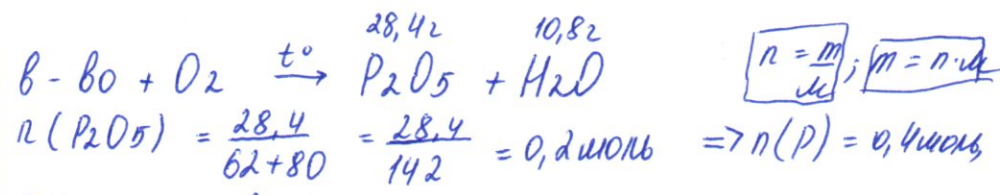 28,4г 10,8г
в-во + O2 t° → P2O5 + H2O n = m/M ; m = n·M
n(P2O5) = 28,4/62+80 = 28,4/142 = 0,2 моль => n(P) = 0,4 моль,